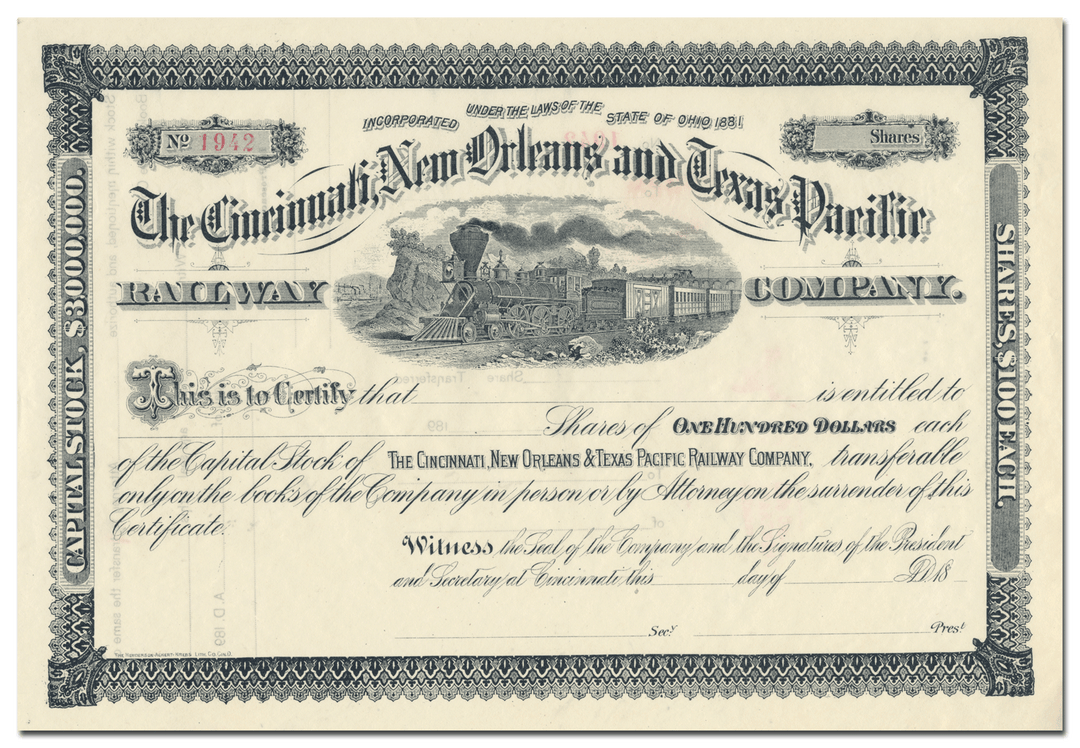 INCORPORATED UNDER THE LAWS OF THE STATE OF OHIO 1881
No 1942
Shares
The Cincinnati, New Orleans and Texas Pacific
RAILWAY COMPANY.
CAPITAL STOCK, $3,000,000.
SHARES, $100 EACH
This is to Certify that is entitled to
Shares of ONE HUNDRED DOLLARS each
of the Capital Stock of THE CINCINNATI, NEW ORLEANS & TEXAS PACIFIC RAILWAY COMPANY, transferable
only on the books of the Company in person or by Attorney on the surrender of this
Certificate.
Witness the Seal of the Company and the Signatures of the President
and Secretary, at Cincinnati, this day of AD 18
Secy Prest